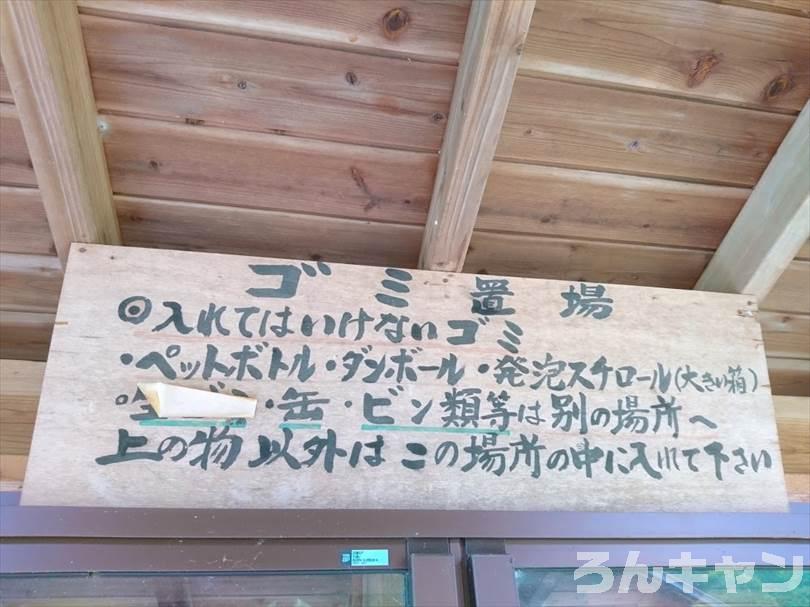 ゴミ置場
◎入れてはいけないゴミ
・ペットボトル・ダンボール・発泡スチロール(大きい箱)
・缶・ビン類等は別の場所へ
上の物以外はこの場所の中に入れて下さい
ろんキャン